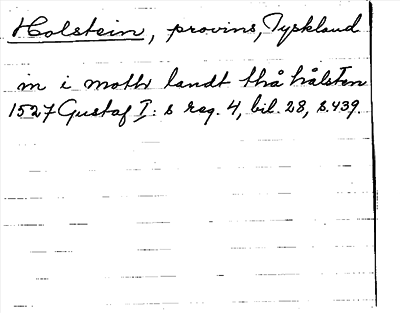 Holstein, provins, Tyskland
in i moth landt thå hålsten
1527 Gustaf I: s reg. 4, bil. 28, s. 439.